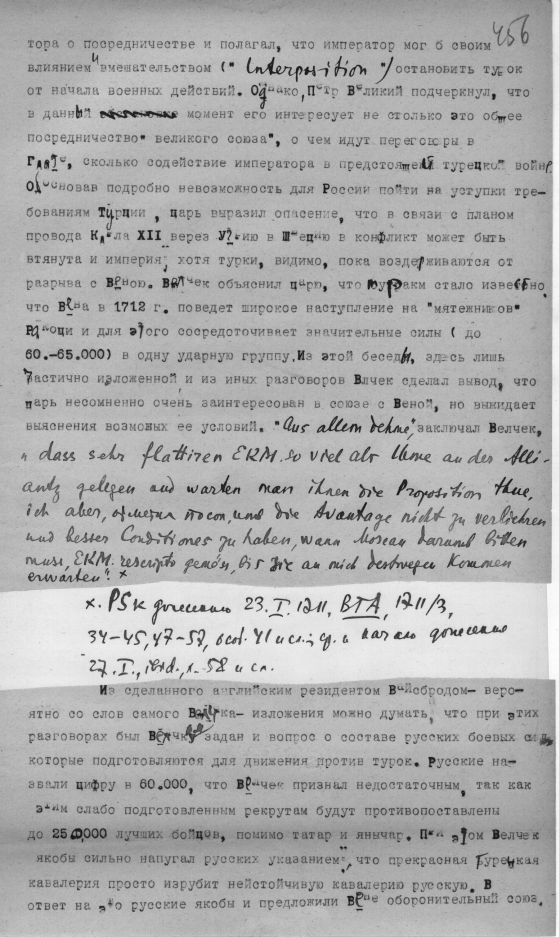 456
тора о посредничестве и полагал, что император мог б своим
влиянием и вмешательством (" Interposition ") остановить турок
от начала военных действий. Однако, Петр Великий подчеркнул, что
в данный момент его интересует не столько это общее
посредничество" великого союза", о чем идут переговоры в
Гааге, сколько содействие императора в предстоящей турецкой войне.
Обосновав подробно невозможность для России пойти на уступки тре-
бованиям Турции , царь выразил опасение, что в связи с планом
провода Карла XII верез в Швецию в конфликт может быть
втянута и империя, хотя турки, видимо, пока воздерживаются от
разрыва с Веною. Велчек объяснил царю, что туркам стало известно,
что Вена в 1712 г. поведет широкое наступление на "мятежников"
Ракоци и для этого сосредоточивает значительные силы ( до
60.-65.000) в одну ударную группу. Из этой беседы, здесь лишь
частично изложенной, и из иных разговоров Влчек сделал вывод, что
царь несомненно очень заинтересован в союзе с Веной, но выжидает
выяснения возможных ее условий. "Aus allem dehme", заключал Велчек,
" dass sehr flattiren EKM. so viel als Ihme an der Alli-
antz gelegen und warten man ihnen die Proposition thue,
ich aber, отметил посол, und die Avantage nicht zu verliehren
und besser Conditiones zu haben, wann Moscau darumb bitten
muss, EKM. rescripto gemäss, bis Sie an mich destwegen Kommen
erwarten". x
x. PSk донесению 23.I.1711, BTA, 1711/3,
34-45, 47-57, особ. 41 и сл.; ср. и начало донесения
27.I., ibid., л. 58 и сл.
Из сделанного английским резидентом Вайсбродом- веро-
ятно со слов самого Велчка- изложения можно думать, что при этих
разговорах был Велчку задан и вопрос о составе русских боевых сил,
которые подготовляются для движения против турок. Русские на-
звали цифру в 60.000, что Велчек признал недостаточным, так как
этим слабо подготовленным рекрутам будут противопоставлены
до 250.000 лучших бойцов, помимо татар и янычар. При этом Велчек
якобы сильно напугал русских указанием, что прекрасная турецкая
кавалерия просто изрубит нейстойчивую кавалерию русскую. В
ответ на это русские якобы и предложили Вене оборонительный союз.